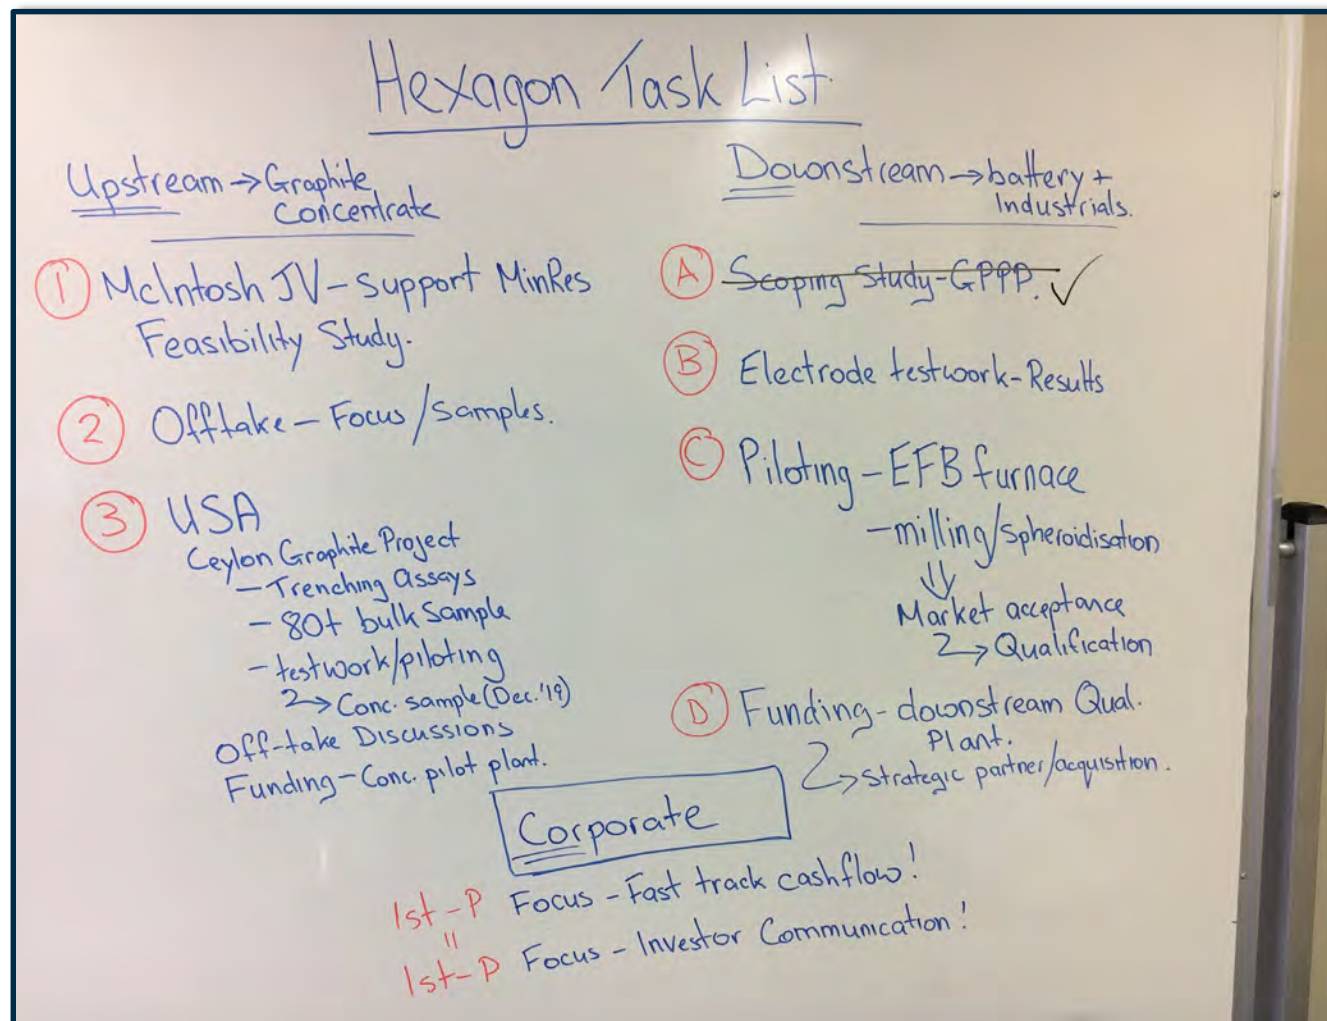 Hexagon Task List.
Upstream → Graphite
Concentrate
① McIntosh JV - Support MinRes
Feasibility Study.
② Offtake - Focus/Samples.
③ USA
Ceylon Graphite Project
- Trenching assays
- 80t bulk Sample
- testwork/piloting
→ Conc. sample (Dec.'19)
Off-take Discussions
Funding - Conc. pilot plant.
Downstream → battery +
Industrials.
Ⓐ Scoping Study - GPPP. ✓
Ⓑ Electrode testwork - Results
Ⓒ Piloting - EFB furnace
- milling/Spheroidisation
⇓
Market acceptance
→ Qualification
Ⓓ Funding - downstream Qual.
Plant.
→ Strategic partner/acquisition.
Corporate
1st - P Focus - Fast track cashflow!
=
1st - P Focus - Investor Communication!